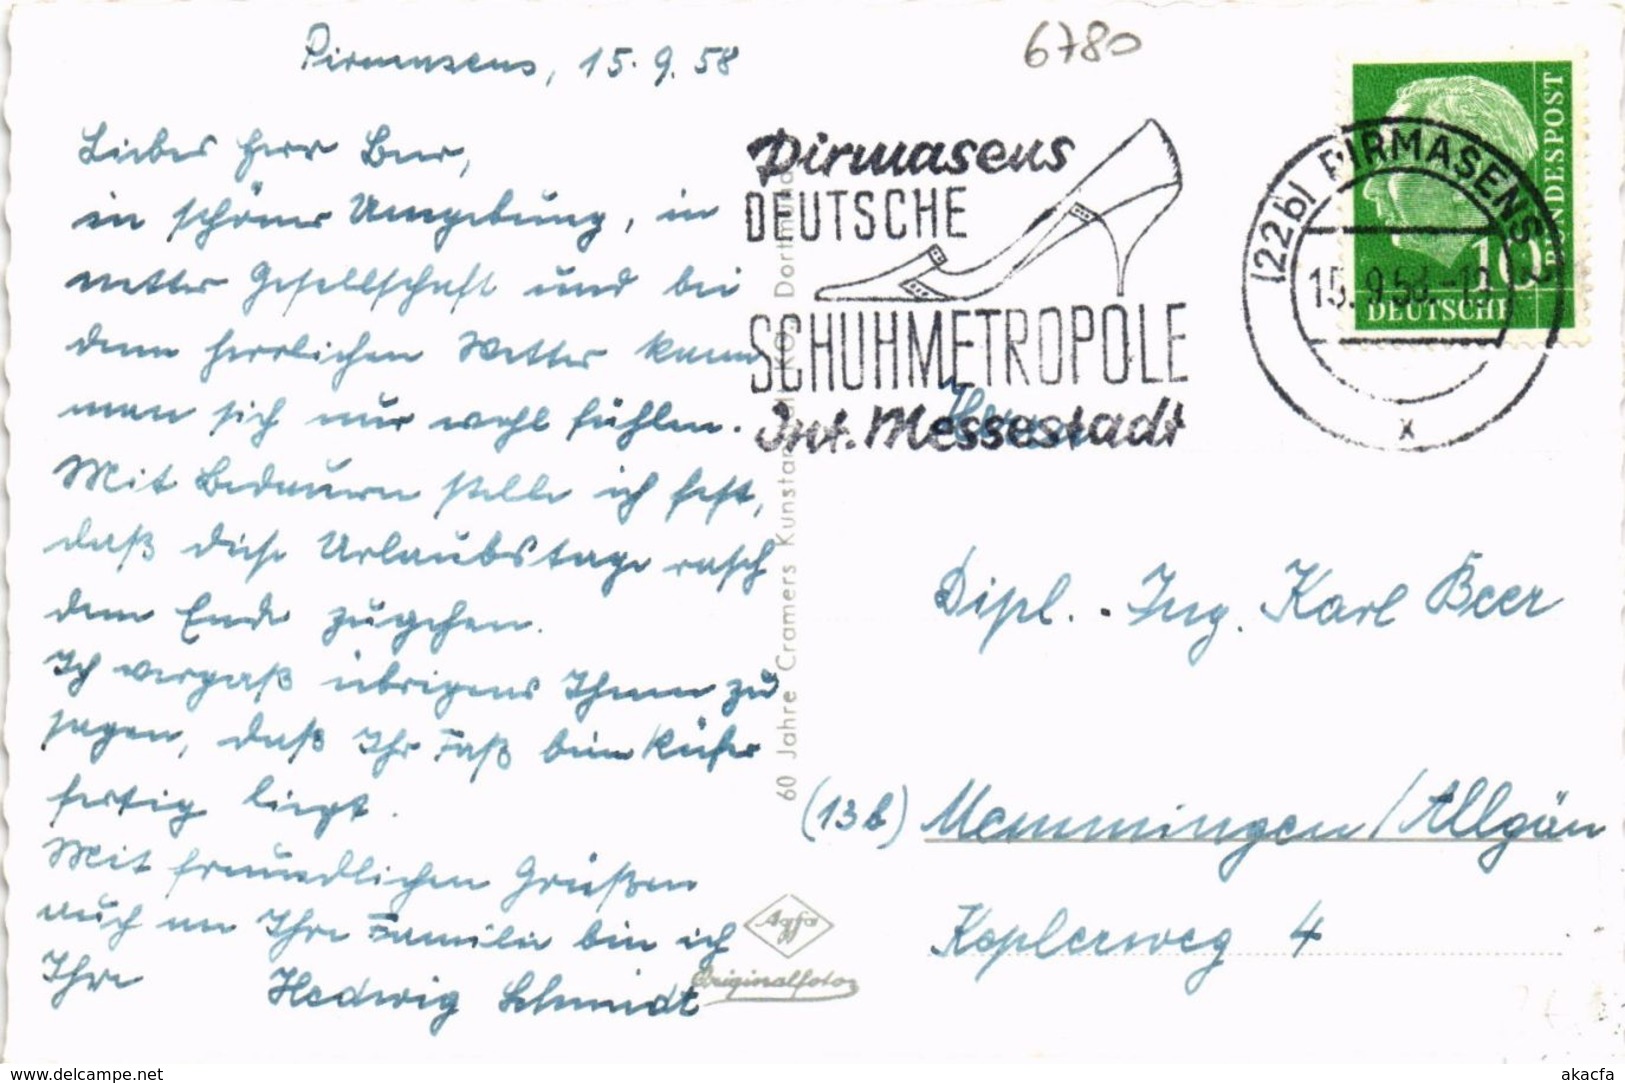 Pirmasens, 15.9.58
6780
Lieber Herr Beer,
in schöner Umgebung, in
netter Gesellschaft und bei
dem herrlichen Wetter kann
man sich nur wohl fühlen.
Mit Bedauern stelle ich fest,
daß diese Urlaubstage rasch
dem Ende zugehen.
Ich vergaß übrigens Ihnen zu
sagen, daß Ihr Faß beim Küfer
fertig liegt.
Mit freundlichen Grüßen
auch an Ihre Familie bin ich
Ihre Hedwig Schmidt
Pirmasens
DEUTSCHE
SCHUHMETROPOLE
Int. Messestadt
(22b) PIRMASENS 2
15.9.58
x
BUNDESPOST
10
DEUTSCHE
60 Jahre Cramers Kunstanstalt KG, Dortmund
Agfa
Originalfoto
Herrn
Dipl.-Ing. Karl Beer
(13b) Memmingen/Allgäu
Keplerweg 4
www.delcampe.net
akacfa